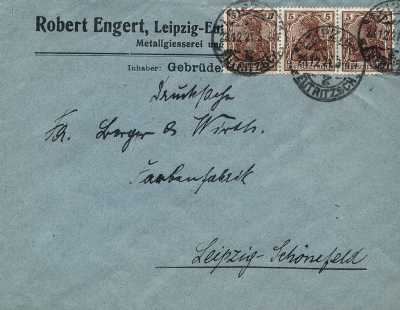 Robert Engert, Leipzig-Eu
Metallgiesserei un
Inhaber: Gebrüde
5 5 5
EUTRITZSCH
Drucksache
Fa. Berger & Wirth.
Farbenfabrik
Leipzig-Schönefeld